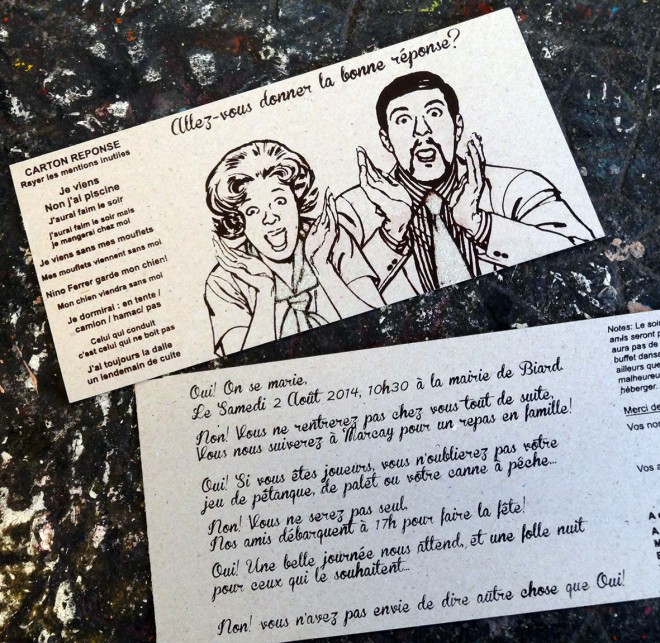 Allez-vous donner la bonne réponse?
CARTON REPONSE
Rayer les mentions inutiles
Je viens
Non j'ai piscine
J'aurai faim le soir
j'aurai faim le soir mais
je mangerai chez moi
Je viens sans mes mouflets
Mes mouflets viennent sans moi
Nino Ferrer garde mon chien!
Mon chien viendra sans moi
Je dormirai : en tente /
camion / hamac/ pas
Celui qui conduit
c'est celui qui ne boit pas
J'ai toujours la dalle
un lendemain de cuite
Oui! On se marie,
Le Samedi 2 Août 2014, 10h30 à la mairie de Biard
Non! Vous ne rentrerez pas chez vous tout de suite,
Vous nous suiverez à Marcay pour un repas en famille!
Oui! Si vous êtes joueurs, vous n'oublierez pas vôtre
jeu de pétanque, de palet ou vôtre canne à pêche...
Non! Vous ne serez pas seul,
Nos amis débarquent à 17h pour faire la fête!
Oui! Une belle journée nous attend, et une folle nuit
pour ceux qui le souhaitent...
Non! vous n'avez pas envie de dire autre chose que Oui!
Notes: Le soi
amis seront p
aura pas de
buffet dans
ailleurs que
malheureu
héberger.
Merci de
Vos no
Vos a